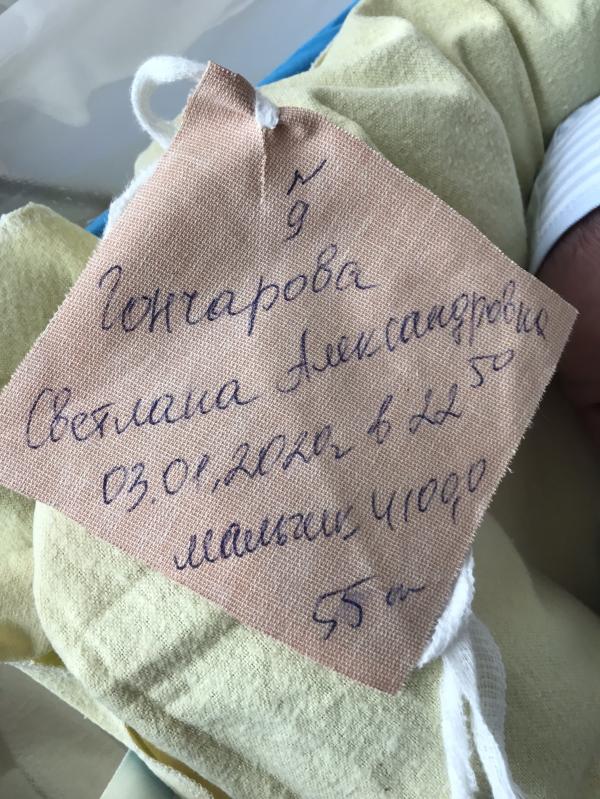 N
9
Гончарова
Светлана Александровна
03.01.2020г в 22 50
мальчик 4100,0
55 см